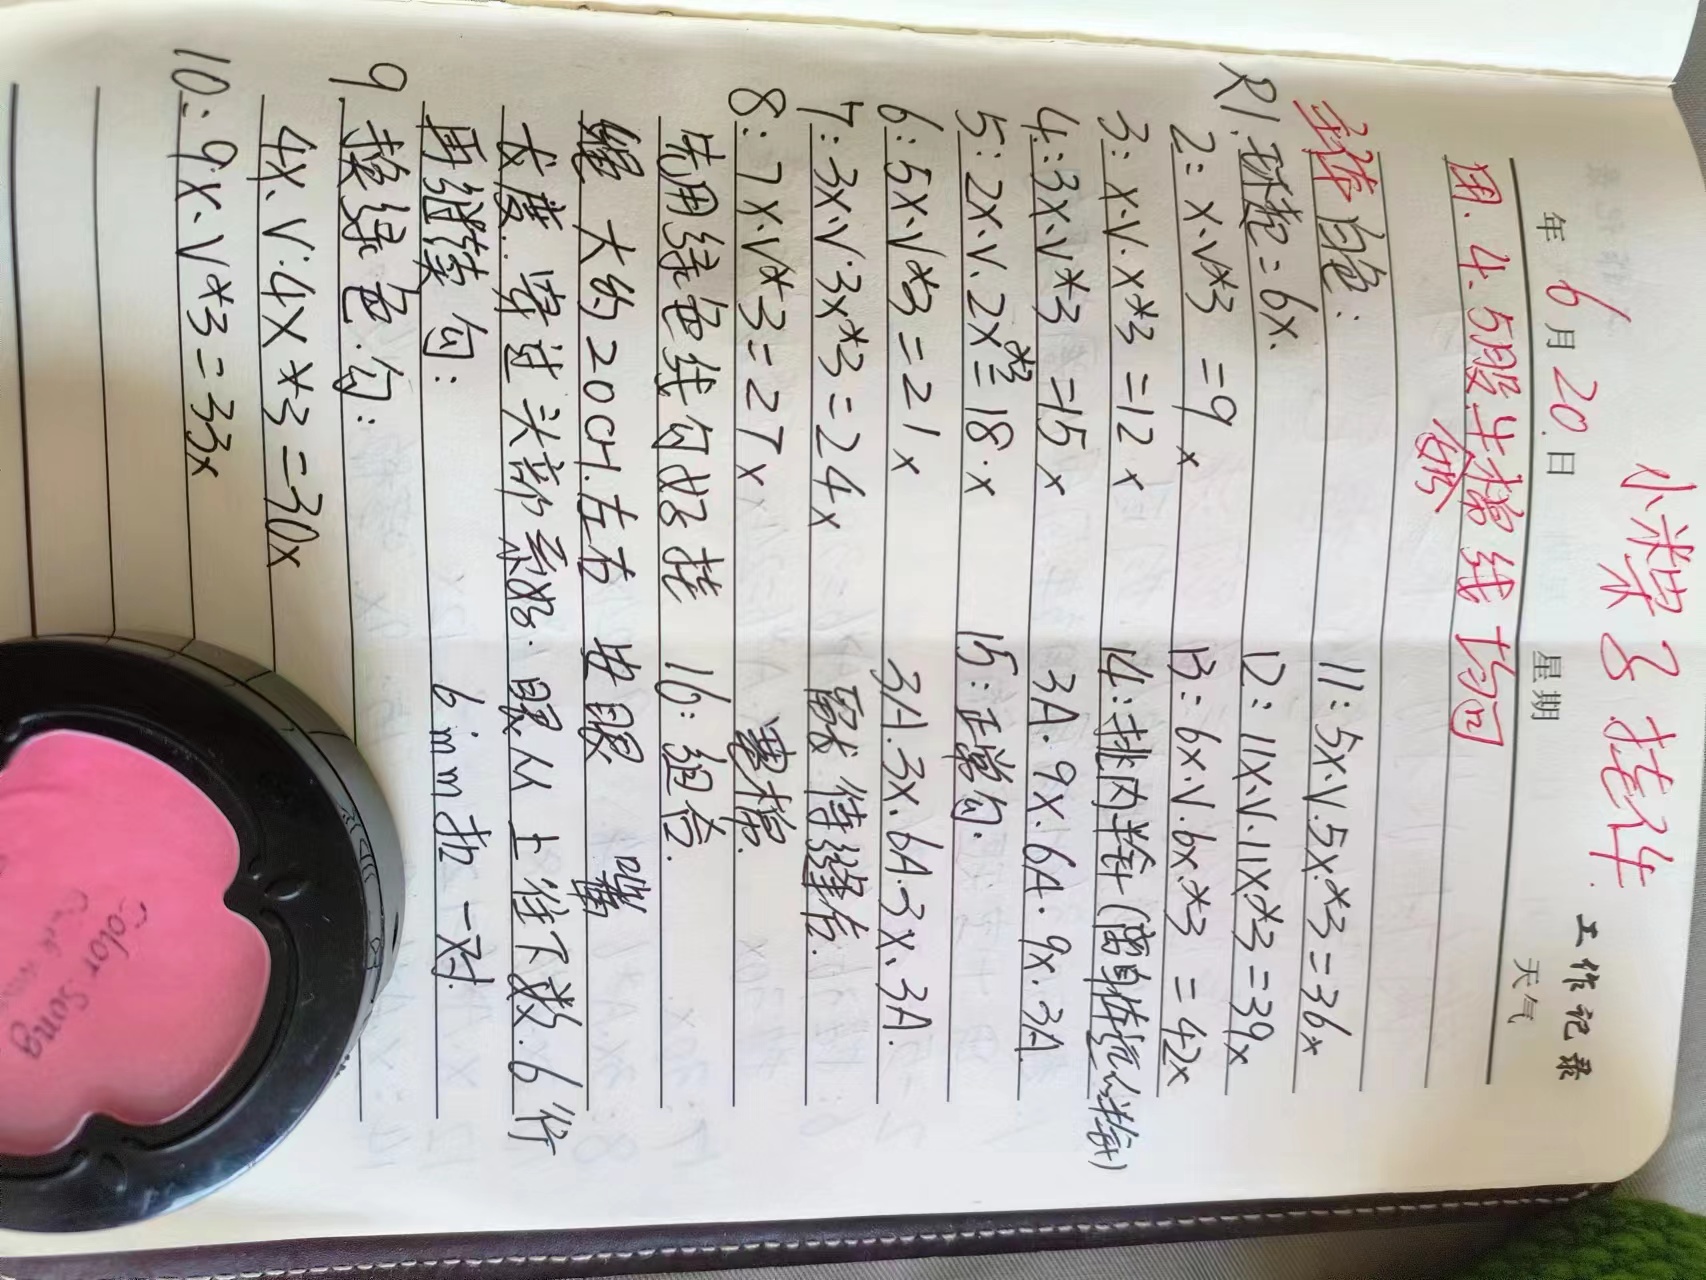 小粽子挂件
工作记录
年 6月20日 星期 天气
用4.5股牛奶棉线均可
主体 白色：
R1.环起=6x.
2：x.v*3 =9x
3：x.v.x*3=12x
4：3x.v*3=15x
5：2x.v.2x*3=18.x
6：5x.v*3=21x
7：3x.v.3x*3=24x
8：7x.v*3=27x
先用绿色线勾好挂
绳 大约20cm.左右
长度.穿过头部系好.
再继续勾：
9 换绿色.勾：
4x.v.4x*3=30x
10：9x.v*3=33x
11：5x.v.5x.*3=36x
12：11x.v.11x*3=39x
13：6x.v.6x.*3=42x
14：挑内半针(离身体
3A.9x.6A.9x.3A
15：正常勾.
3A.3x.6A.3x.3A.
留线待缝合.
塞棉.
16：组合.
安眼 嘴
眼从上往下数.6行
6mm扣一对.
Color Song